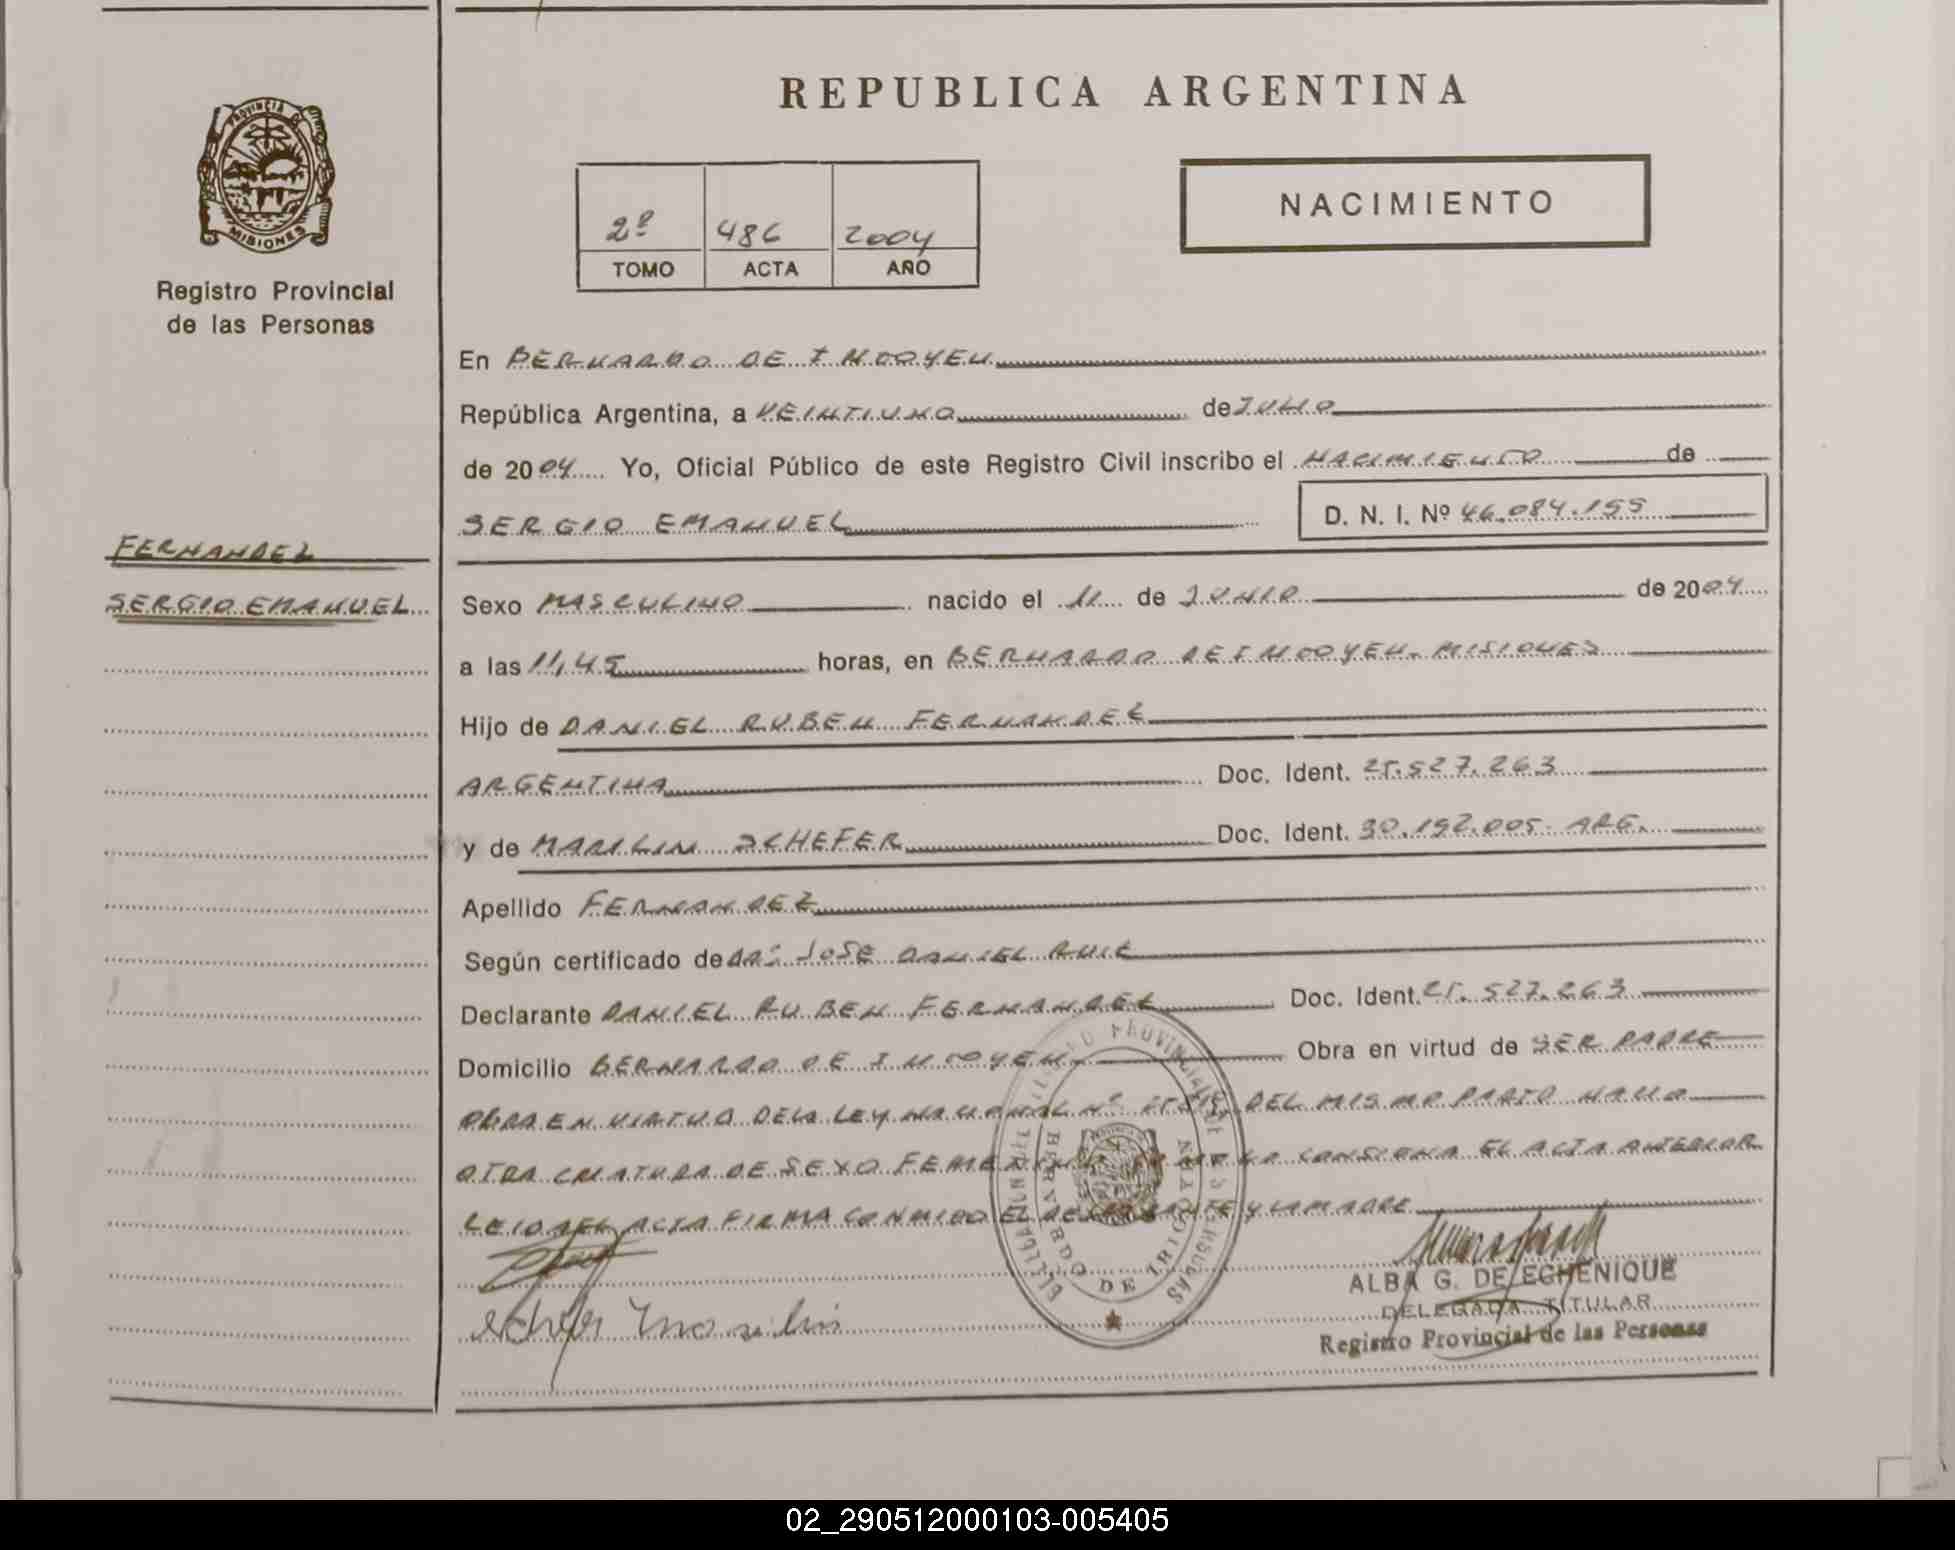 REPUBLICA ARGENTINA
PROVINCIA DE
MISIONES
Registro Provincial
de las Personas
2º 486 2004
TOMO ACTA AÑO
NACIMIENTO
En BERNARDO DE IRIGOYEN
República Argentina, a VEINTIUNO de JULIO
de 2004 Yo, Oficial Público de este Registro Civil inscribo el NACIMIENTO de
SERGIO EMANUEL D. N. I. Nº 46.084.155
FERNANDEZ
SERGIO EMANUEL
Sexo MASCULINO nacido el 11 de JUNIO de 2004
a las 11,45 horas, en BERNARDO DE IRIGOYEN. MISIONES
Hijo de DANIEL RUBEN FERNANDEZ
ARGENTINA Doc. Ident. 25.527.263
y de MARILIN SCHEFER Doc. Ident. 30.192.005. ARG.
Apellido FERNANDEZ
Según certificado de JOSE DANIEL RUIZ
Declarante DANIEL RUBEN FERNANDEZ Doc. Ident. 25.527.263
Domicilio BERNARDO DE IRIGOYEN Obra en virtud de SER PADRE
OBRA EN VIRTUD DE LA LEY NACIONAL Nº DEL MISMO PARTO NACIO
OTRA CRIATURA DE SEXO CONSIGNA EL ACTA ANTERIOR
LEIDA EL ACTA FIRMA CONMIGO EL Y LA MADRE
Schefer Marilin
BERNARDO DE IRIGOYEN
ALBA G. DE ECHENIQUE
DELEGADA TITULAR
Registro Provincial de las Personas
02_290512000103-005405